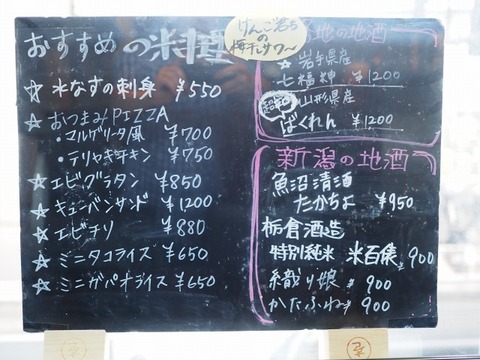 おすすめの料理
☆ 水なすの刺身 ¥550
☆ おつまみPIZZA
・マルゲリータ風 ¥700
・テリヤキチキン ¥750
☆ エビグラタン ¥850
☆ キューバンサンド ¥1200
☆ エビチリ ¥880
☆ ミニタコライス ¥650
☆ ミニガパオライス ¥650
けんご君ちの
梅干しサワー
地の地酒
☆ 岩手県産
七福神 ¥1200
山形県産
ばくれん ¥1200
新潟の地酒
魚沼清酒
たかちよ ¥950
栃倉酒造
特別純米 米百俵 ¥900
織り娘 ¥900
かたふね ¥900